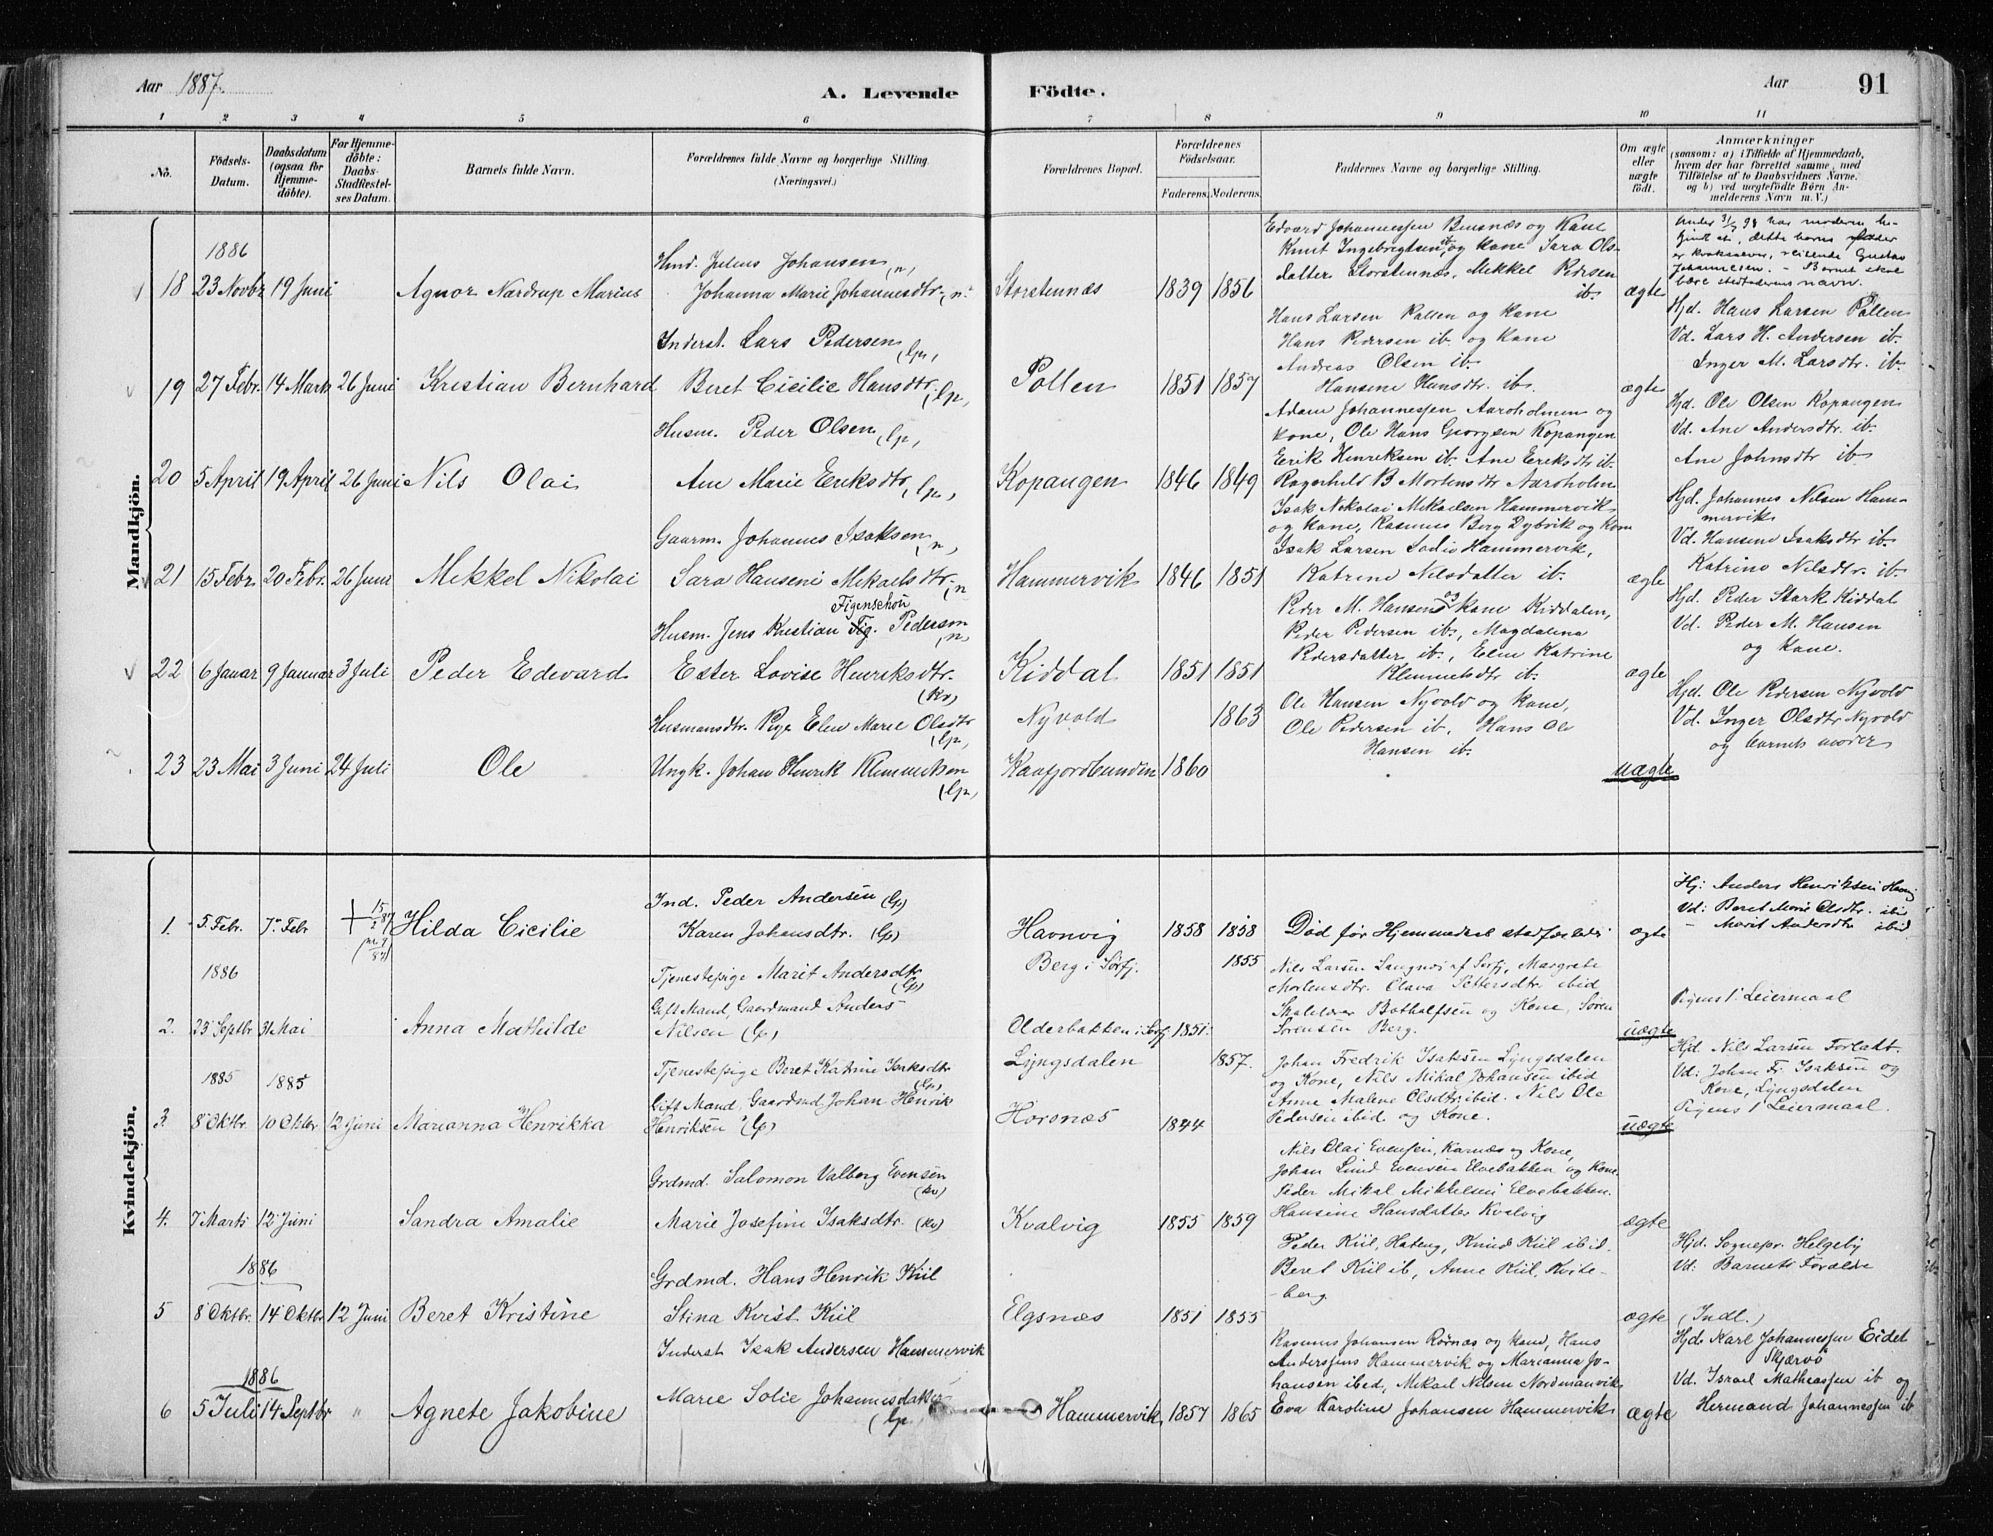 Aar 1887.
A. Levende
Födte.
Aar
91
1 2 3 4 5 6 7 8 9 10 11
No.
Födsels-
Datum.
Daabsdatum
(ogsaa for
Hjemme-
döbte).
For Hjemme-
döbte:
Daabs-
Stadfæstel-
ses Datum.
Barnets fulde Navn.
Forældrenes fulde Navne og borgerlige Stilling.
(Næringsvei.)
Forældrenes Bopæl.
Forældrenes
Födselsaar.
Faderens. Moderens.
Faddernes Navne og borgerlige Stilling.
Om ægte
eller
uægte
födt.
Anmærkninger
(saasom: a) i Tilfælde af Hjemmedaab,
hvem der har forrettet samme, med
Tilföielse af to Daabsvidners Navne.
og b) ved uægtefödte Börn An-
melderens Navn m. V.)
Mandkjön.
1886
18 23 Novbr 19 Juni
Agnor Nordrup Marius
Hmd. Julius Johansen (n)
Johanna Marie Johannesdtr. (n)
Storstennæs 1839 1856
Edvard Johannessen Bensnæs og Kane
Knut Ingebrigtsen og kane Sara Ols-
datter Storstennæs, Mekkel Pedersen
ib.
ægte
har moderen be-
, dette barns
reisende Gustav
Johannesen. – Barnet skal
bære stedfaderens navn.
19 27 Febr. 14 Marts 26 Juni
Kristian Bernhard
Inderst. Lars Pedersen (lp)
Beret Cicilie Hansdtr. (lp)
Pollen 1851 1857
Hans Larsen Pollen og kane
Hans Pedersen ib. og kane
Andreas Olsen ib.
Hansine Hansdtr. ib.
ægte
Hjd. Hans Larsen Pollen
Vd. Lars H. Andersen ib.
Inger M. Larsdtr. ib.
20 5 April 19 April 26 Juni
Nils Olai
Husm. Peder Olsen (lp)
Ane Marie Eriksdtr (lp)
Kopangen 1846 1849
Adam Johannessen Aaroholmen og
kone, Ole Hans Georgsen Kopangen
Erik Henriksen ib. Ane Eriksdtr ib.
Ragnhild B Mortensdtr Aaroholm
Hjd. Ole Olsen Kopangen
Vd. Ane Andersdtr. ib.
Ane Johnsdtr ib.
21 15 Febr. 20 Febr. 26 Juni
Mekkel Nikolai
Gaarm. Johannes Isaksen (n)
Sara Hansine Mekaelsdtr. (n)
Hammervik 1846 1851
Isak Nikolai Mikaelsen Hammervik
og kane, Rasmus Berg Dybvik og kone
Isak Larsen Hammervik,
Katrine Nilsdatter ib.
ægte
Hjd. Johannes Nilsen Ham-
mervik
Vd. Hansine Isaksdtr ib.
Katrine Nilsdtr. ib.
22 6 Januar 9 Januar 3 Juli
Peder Edevard
Figenschou
Husm. Jens Kristian Fig. Pedersen (n)
Ester Lovise Henriksdtr. (Kv)
Kiddal 1851 1851
Peder M. Hansen og kane Kiddalen,
Peder Pedersen ib., Magdalena
Pedersdatter ib., Elen Katrine
Klemmetsdtr ib.
ægte
Hjd. Peder Stark Kiddal
Vd. Peder M. Hansen
og kane.
23 23 Mai 3 Juni 24 Juli
Ole
Husmansdtr. Pige Elen Marie Olsdtr (lp)
Ungk. Johan Henrik Klemmetsen (lp)
Nyvold 1863
Kaafjordbunden 1860
Ole Hansen Nyvold og kane,
Ole Pedersen ib. Hans Ole
Hansen ib.
uægte
Hjd. Ole Pedersen Nyvold
Vd. Inger Olsdtr Nyvold
og barnets moder
Kvindekjön.
1. 5. Febr. 7. Febr
Hilda Cicilie
Ind. Peder Andersen (lp)
Karen Johansdtr. (lp)
Havnvig 1858 1858
Död før Hjemmedaab stadfæstedes
ægte
Hj: Anders Henriksen Havnvig
Vd: Beret Marie Olsdtr. ibid
– Marit Andersdtr ibid
1886
2. 23 Septbr 31 Mai
Anna Mathilde
Tjenestepige Marit Andersdtr (lp)
Gift Mand, Gaardmand Anders
Nilsen (lp)
Berg i Sørfj. 1855
Olderbakken i Sørfj 1851.
Nils Larsen Langnes af Sørfj, Margrete
Mortensdtr. Olava Pettersdtr ibid
Botholfsen og Kone, Søren
Sørensen Berg.
uægte
Pigens 1' Leiermaal
1885 1885
3. 8 Oktbr. 10 Oktbr 12 Juni
Marianna Henrikka
Tjenestepige Beret Katrine Isaksdtr (lp)
Gift Mand, Gaardmd Johan Henrik
Henriksen (lp)
Lyngsdalen 1857.
Horsnæs 1844
Johan Fredrik Isaksen Lyngsdalen
og Kone, Nils Mikal Johansen ibid
Anne Malene Olsdtr ibid. Nils Ole
Pedersen ibid og Kone.
uægte
Hjd. Nils Larsen Forlatt.
Vd: Johan Fr. Isaksen og
Kone, Lyngsdalen
Pigens 1' Leiermaal.
4. 7 Marts 12 Juni
Sandra Amalie
Grdmd. Salomon Valberg Evensen (Kv)
Marie Josefine Isaksdtr. (Kv)
Kvalvig 1855 1859
Nils Olai Evensen, Karnæs og Kone,
Johan Lund Evensen Elvebakken og Kone.
Peder Mikal Mikkelsen Elvebakken.
Hansine Hansdatter Kvalvig
ægte
1886
5 8 Oktbr. 14 Oktbr 12 Juni
Beret Kristine
Grdmd. Hans Henrik Kiil
Stina Kvist Kiil
Elgsnæs 1851 1855
Peder Kiil, Hateng, Knud Kiil ibid.
Beret Kiil ib, Anne Kiil, Kvite-
berg
ægte
Hjd. Sognepr. Helgeby
Vd. Barnets Forældre
(Indl.)
1886
6 5 Juli 14 Septbr "
Agnete Jakobine
Inderst Isak Andersen Hammervik
Marie Sofie Johannesdatter (lp)
Hammervik 1857 1865
Rasmus Johansen Rørnæs og kane, Hans
Anderssens Hammervik og Marianna Jo-
hansen ibed, Mikael Nilsen Nordmanvik
Eva Karoline Johansen Hammervik
ægte
Hjd. Karl Johannessen Eidet
Skjærvö
Vd. Israel Mathiassen ib og
Hermand Johannessen ib